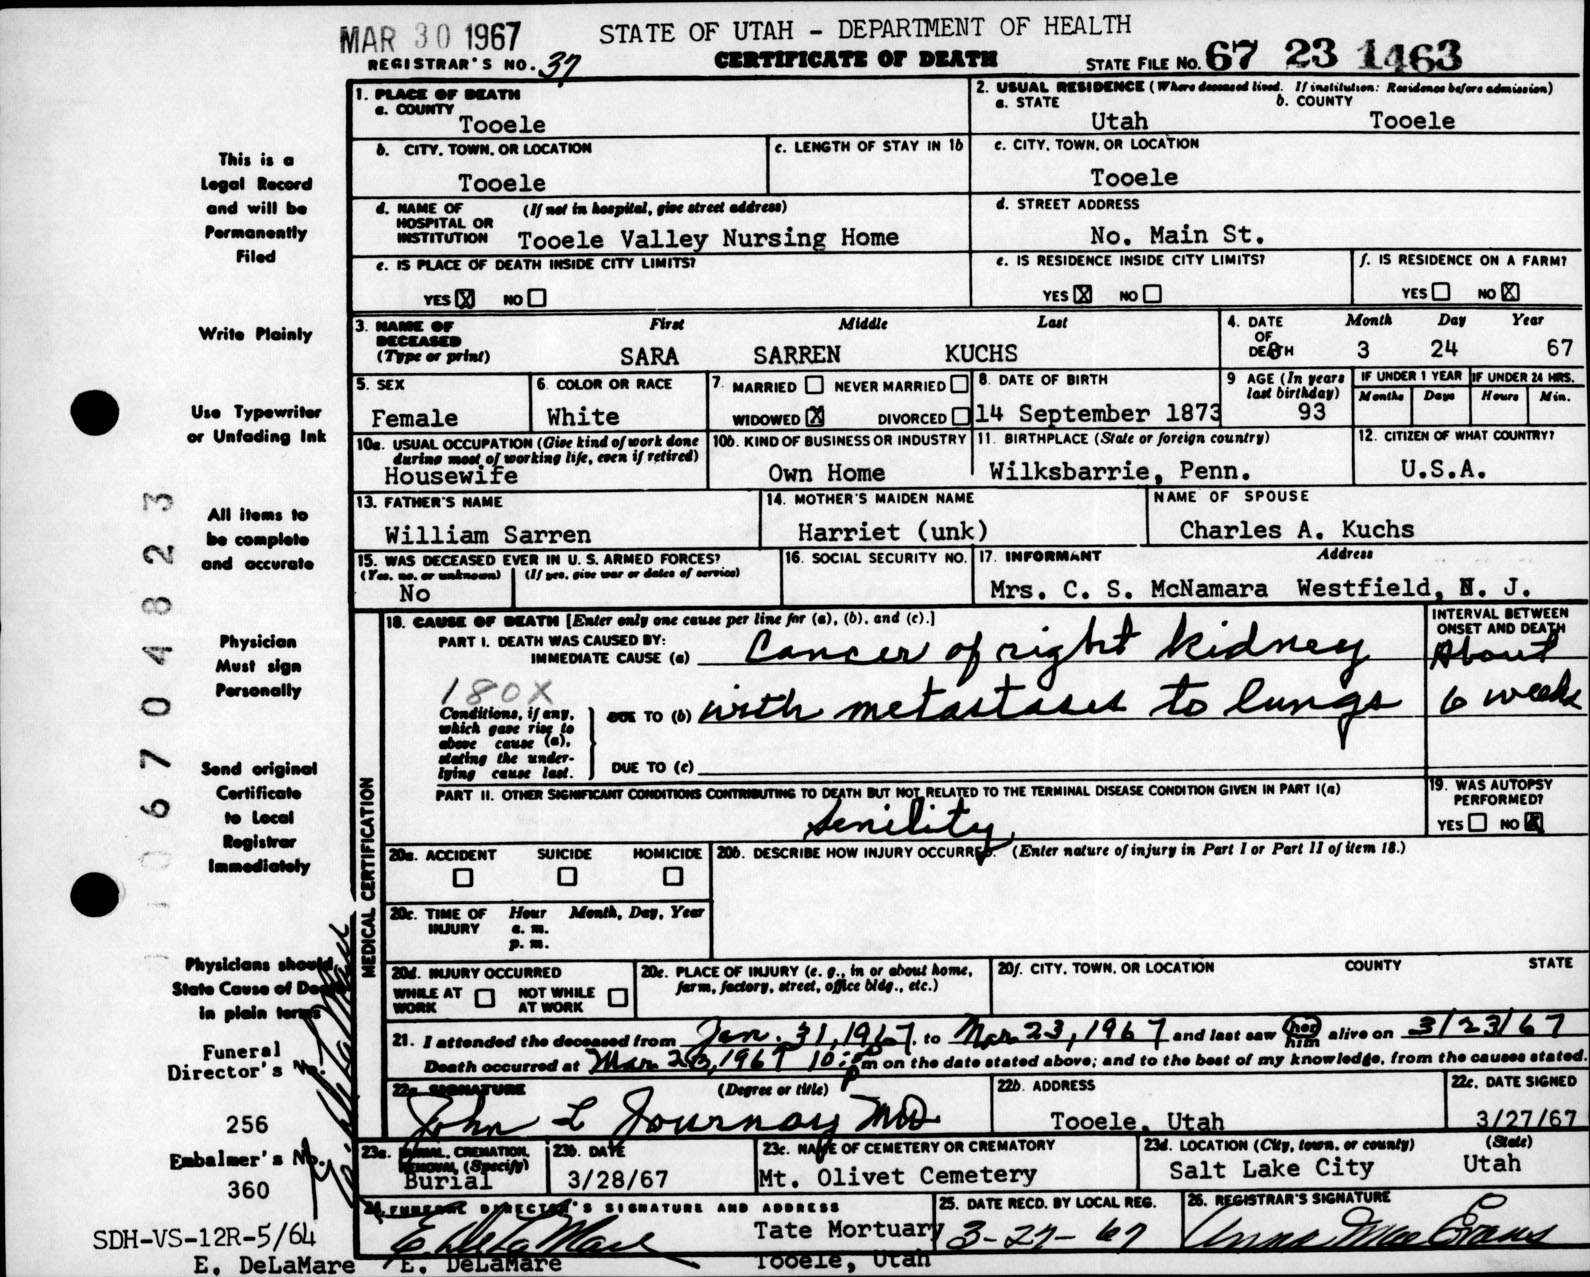 MAR 30 1967
STATE OF UTAH - DEPARTMENT OF HEALTH
REGISTRAR'S NO. 37
CERTIFICATE OF DEATH
STATE FILE NO. 67 23 1463
This is a
Legal Record
and will be
Permanently
Filed
Write Plainly
Use Typewriter
or Unfading Ink
All items to
be complete
and accurate
Physician
Must sign
Personally
Send original
Certificate
to Local
Registrar
Immediately
Physicians should
State Cause of Death
in plain terms
Funeral
Director's No.
256
Embalmer's No.
360
SDH-VS-12R-5/64
E. DeLaMare
06704823
1. PLACE OF DEATH
a. COUNTY
Tooele
2. USUAL RESIDENCE (Where deceased lived. If institution: Residence before admission)
a. STATE b. COUNTY
Utah Tooele
b. CITY, TOWN, OR LOCATION
Tooele
c. LENGTH OF STAY IN 1b
c. CITY, TOWN, OR LOCATION
Tooele
d. NAME OF (If not in hospital, give street address)
HOSPITAL OR
INSTITUTION Tooele Valley Nursing Home
d. STREET ADDRESS
No. Main St.
e. IS PLACE OF DEATH INSIDE CITY LIMITS?
YES X NO
e. IS RESIDENCE INSIDE CITY LIMITS?
YES X NO
f. IS RESIDENCE ON A FARM?
YES NO X
3. NAME OF First Middle Last
DECEASED
(Type or print) SARA SARREN KUCHS
4. DATE Month Day Year
OF
DEATH 3 24 67
5. SEX
Female
6. COLOR OR RACE
White
7. MARRIED NEVER MARRIED
WIDOWED X DIVORCED
8. DATE OF BIRTH
14 September 1873
9 AGE (In years
last birthday)
93
IF UNDER 1 YEAR
Months Days
IF UNDER 24 HRS.
Hours Min.
10a. USUAL OCCUPATION (Give kind of work done
during most of working life, even if retired)
Housewife
10b. KIND OF BUSINESS OR INDUSTRY
Own Home
11. BIRTHPLACE (State or foreign country)
Wilksbarrie, Penn.
12. CITIZEN OF WHAT COUNTRY?
U.S.A.
13. FATHER'S NAME
William Sarren
14. MOTHER'S MAIDEN NAME
Harriet (unk)
NAME OF SPOUSE
Charles A. Kuchs
15. WAS DECEASED EVER IN U. S. ARMED FORCES?
(Yes, no, or unknown) (If yes, give war or dates of service)
No
16. SOCIAL SECURITY NO.
17. INFORMANT Address
Mrs. C. S. McNamara Westfield, N. J.
MEDICAL CERTIFICATION
18. CAUSE OF DEATH [Enter only one cause per line for (a), (b), and (c).]
PART I. DEATH WAS CAUSED BY:
IMMEDIATE CAUSE (a) Cancer of right kidney
180X
Conditions, if any,
which gave rise to
above cause (a),
stating the under-
lying cause last.
DUE TO (b) with metastases to lungs
DUE TO (c)
INTERVAL BETWEEN
ONSET AND DEATH
About
6 weeks
PART II. OTHER SIGNIFICANT CONDITIONS CONTRIBUTING TO DEATH BUT NOT RELATED TO THE TERMINAL DISEASE CONDITION GIVEN IN PART I(a)
Senility
19. WAS AUTOPSY
PERFORMED?
YES NO X
20a. ACCIDENT SUICIDE HOMICIDE
20b. DESCRIBE HOW INJURY OCCURRED. (Enter nature of injury in Part I or Part II of item 18.)
20c. TIME OF Hour Month, Day, Year
INJURY a. m.
p. m.
20d. INJURY OCCURRED
WHILE AT NOT WHILE
WORK AT WORK
20e. PLACE OF INJURY (e. g., in or about home,
farm, factory, street, office bldg., etc.)
20f. CITY, TOWN, OR LOCATION COUNTY STATE
21. I attended the deceased from Jan. 31, 1967, to Mar. 23, 1967 and last saw her him alive on 3/23/67
Death occurred at Mar. 23, 1967 10: p m on the date stated above; and to the best of my knowledge, from the causes stated.
22a. SIGNATURE (Degree or title)
John L Journay MD
22b. ADDRESS
Tooele, Utah
22c. DATE SIGNED
3/27/67
23a. BURIAL, CREMATION,
REMOVAL (Specify)
Burial
23b. DATE
3/28/67
23c. NAME OF CEMETERY OR CREMATORY
Mt. Olivet Cemetery
23d. LOCATION (City, town, or county) (State)
Salt Lake City Utah
24. FUNERAL DIRECTOR'S SIGNATURE AND ADDRESS
E. DeLaMare Tate Mortuary
E. DeLaMare Tooele, Utah
25. DATE RECD. BY LOCAL REG.
3-27-67
26. REGISTRAR'S SIGNATURE
Anna Mae Evans